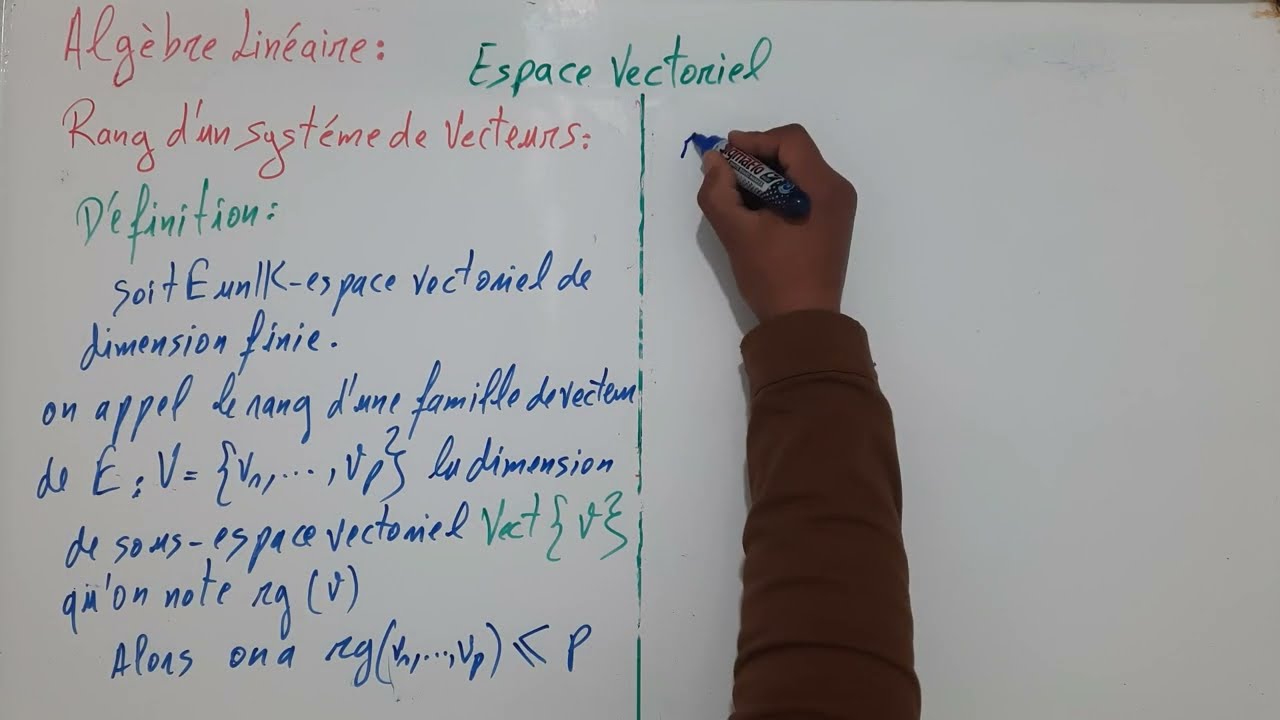 Algèbre Linéaire:
Espace Vectoriel
Rang d'un systéme de Vecteurs:
Définition:
soit E un IK-espace vectoriel de
dimension finie.
on appel le rang d'une famille de vecteur
de E : V = {v₁, ..., vp} la dimension
de sous-espace vectoriel Vect{v}
qu'on note rg (v)
Alors on a rg(v₁,...,vp) ⩽ p